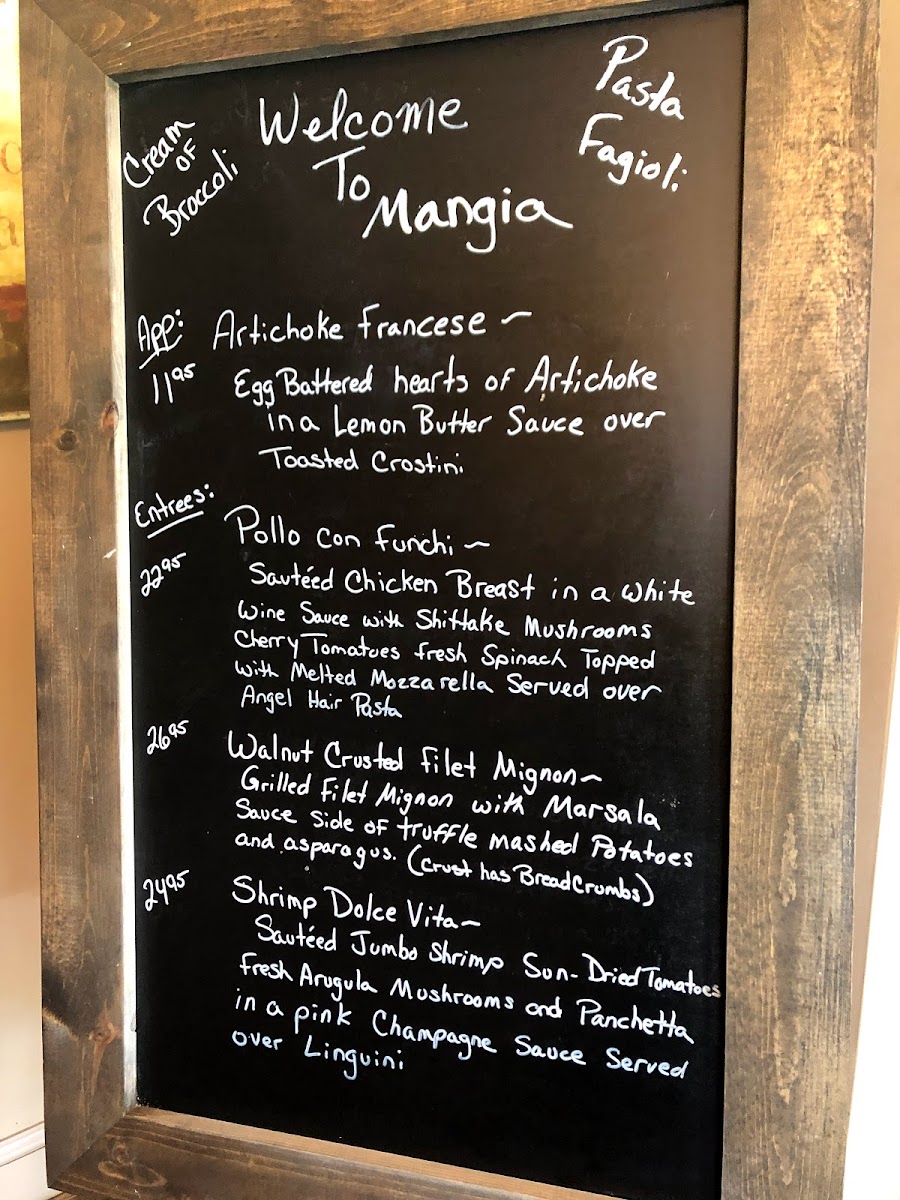 Cream
of
Broccoli
Welcome
To
Mangia
Pasta
Fagioli
App:
Artichoke Francese ~
11.95
Egg Battered hearts of Artichoke
in a Lemon Butter Sauce over
Toasted Crostini
Entrees:
Pollo con Funchi ~
22.95
Sautéed Chicken Breast in a white
Wine Sauce with Shittake Mushrooms
Cherry Tomatoes fresh Spinach Topped
with Melted Mozzarella Served over
Angel Hair Pasta
26.95
Walnut Crusted Filet Mignon ~
Grilled Filet Mignon with Marsala
Sauce Side of truffle mashed Potatoes
and asparagus. (Crust has BreadCrumbs)
24.95
Shrimp Dolce Vita ~
Sautéed Jumbo Shrimp Sun-Dried Tomatoes
Fresh Arugula Mushrooms and Panchetta
in a pink Champagne Sauce Served
over Linguini